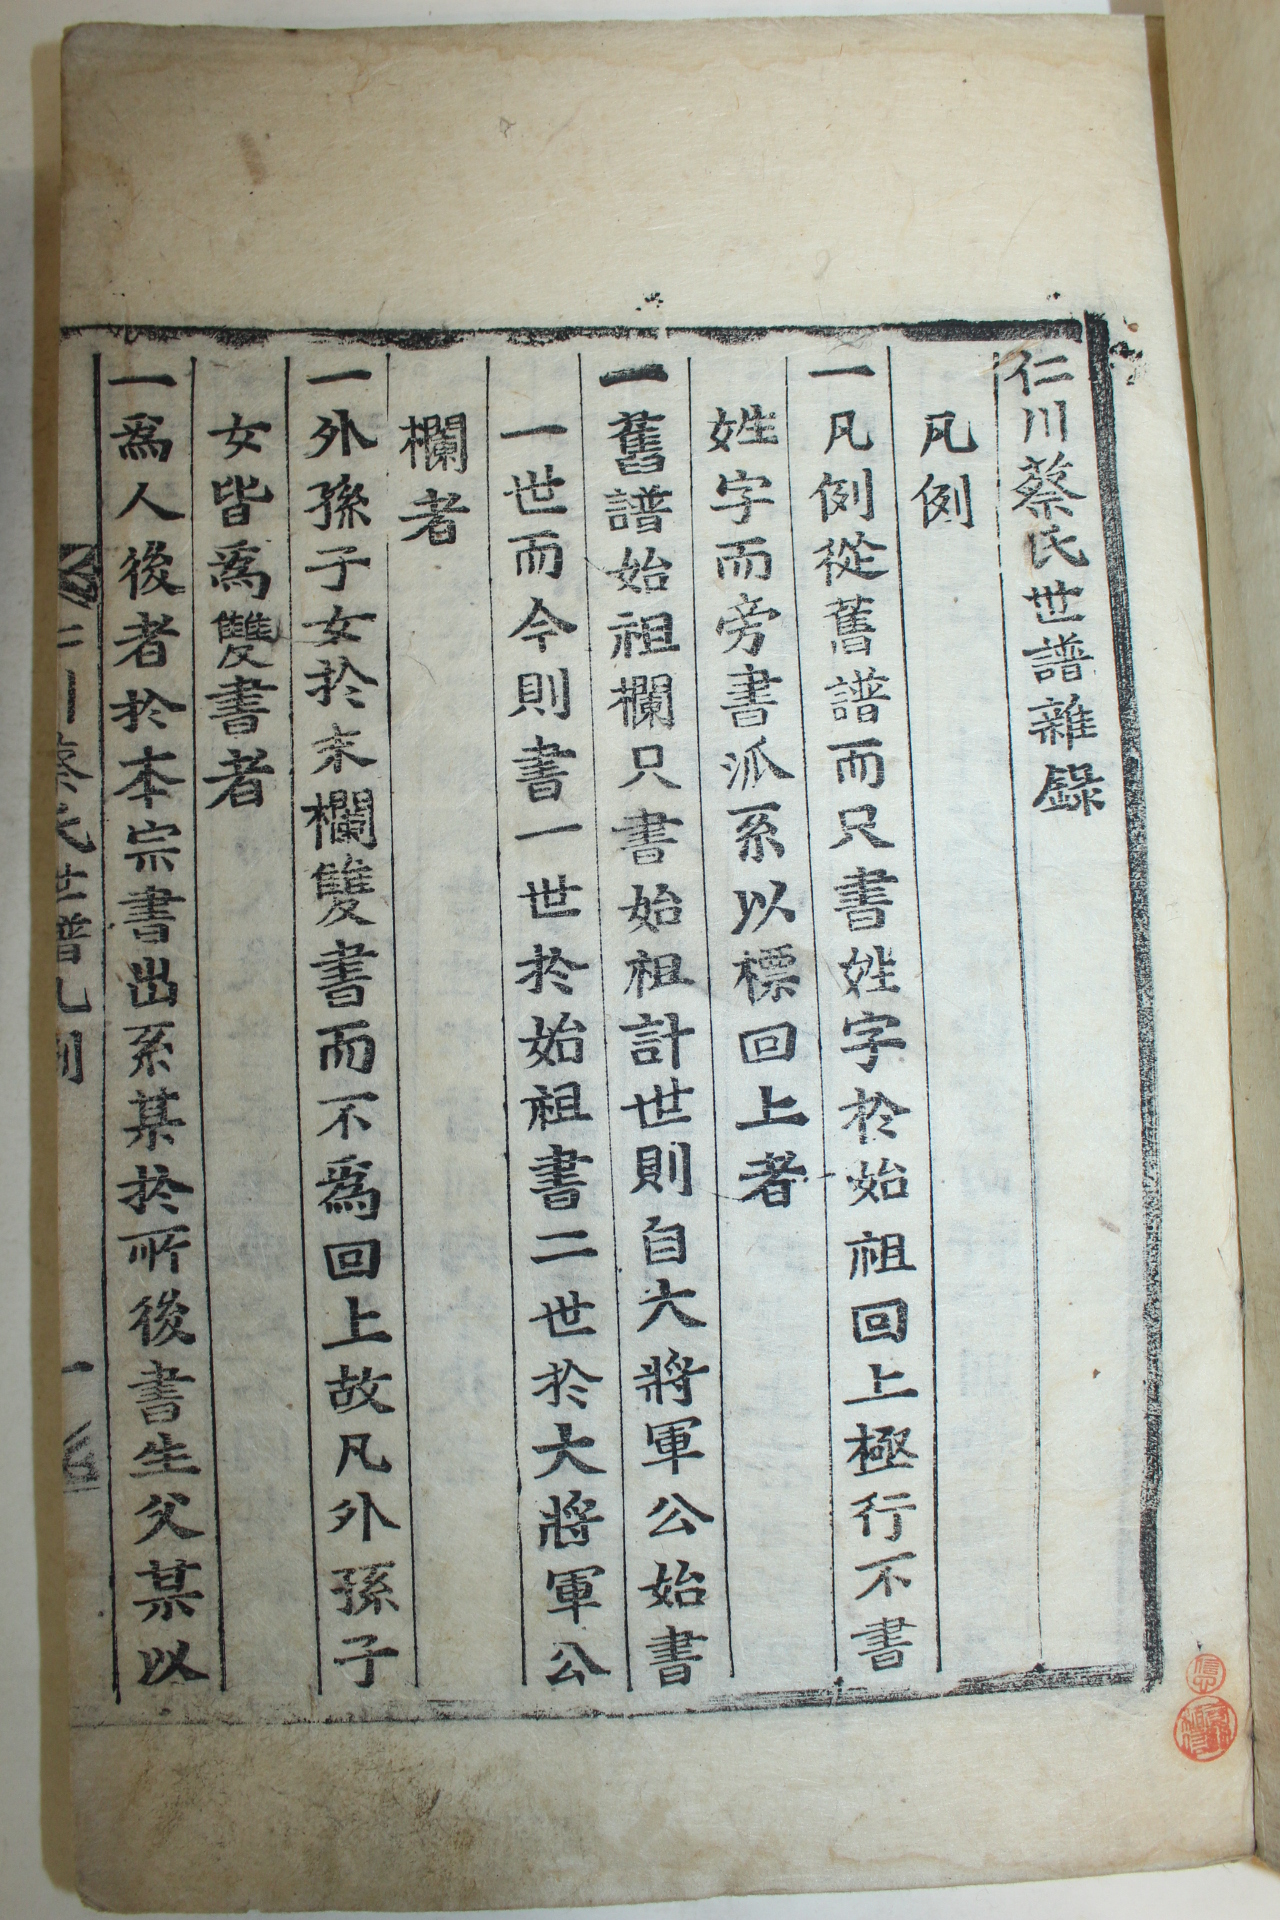 仁川蔡氏世譜雜錄
凡例
一凡例從舊譜而只書姓字於始祖回上極行不書
姓字而旁書派系以標回上者
一舊譜始祖欄只書始祖計世則自大將軍公始書
一世而今則書一世於始祖書二世於大將軍公
欄者
一外孫子女於末欄雙書而不爲回上故凡外孫子
女皆爲雙書者
一爲人後者於本宗書出系某於所後書生父某以
仁川蔡氏世譜凡例
一